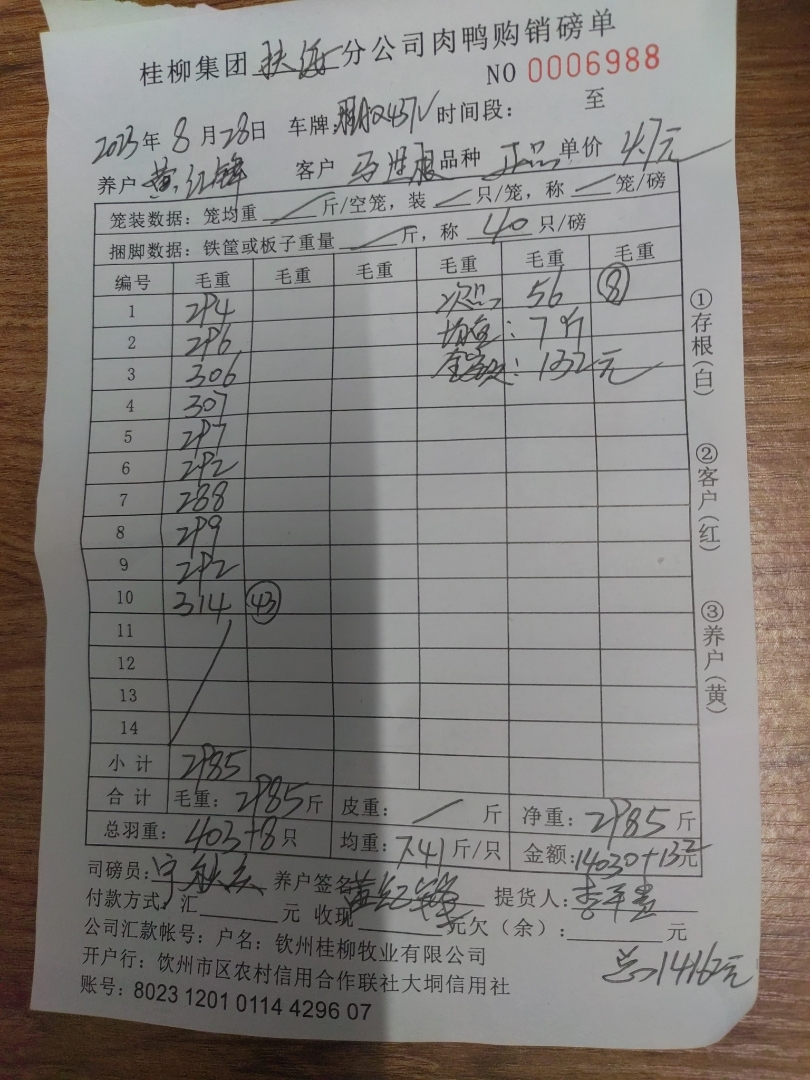 桂柳集团扶海分公司肉鸭购销磅单
NO 0006988
2023年8月28日 车牌: 时间段: 至
养户 黄红锋 客户 品种 正品 单价 4.7元
笼装数据: 笼均重 斤/空笼, 装 只/笼, 称 笼/磅
捆脚数据: 铁筐或板子重量 斤, 称 40 只/磅
编号 毛重 毛重 毛重 毛重 毛重 毛重
1 294 次品 56 ⑧
2 296 均重: 7斤
3 306 金额: 132元
4 307
5 297
6 292
7 288
8 299
9 292
10 314 ㊸
11
12
13
14
小计 2985
合计 毛重: 2985斤 皮重: 斤 净重: 2985斤
总羽重: 403+8只 均重: 7.41斤/只 金额: 14030+132元
司磅员: 养户签名 提货人:
付款方式: 汇 元 收现 元欠(余): 元
公司汇款帐号: 户名: 钦州桂柳牧业有限公司
开户行: 钦州市区农村信用合作联社大垌信用社
总:14162元
账号: 8023 1201 0114 4296 07
①存根(白)
②客户(红)
③养户(黄)